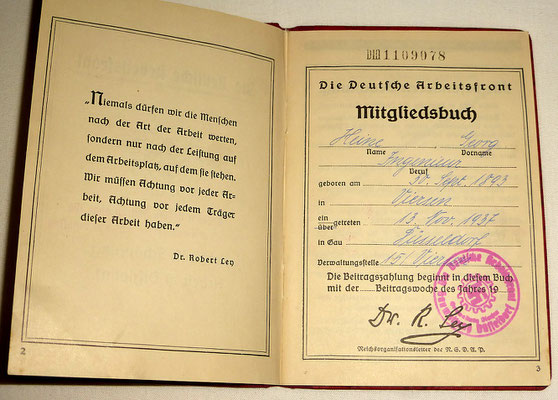 „Niemals dürfen wir die Menschen
nach der Art der Arbeit werten,
sondern nur nach der Leistung auf
dem Arbeitsplatz, auf dem sie stehen.
Wir müssen Achtung vor jeder Ar-
beit, Achtung vor jedem Träger
dieser Arbeit haben.“
Dr. Robert Ley
2
1109978
Die Deutsche Arbeitsfront
Mitgliedsbuch
Georg
Name Vorname
Ingenieur
Beruf
geboren am 30. Sept. 1893
in Viersen
ein
über getreten 13. Nov. 1937
in Gau Düsseldorf
Verwaltungsstelle 15 Viersen
Die Beitragszahlung beginnt in diesem Buch
mit der Beitragswoche des Jahres 19
Dr. R. Ley
Reichsorganisationsleiter der N.S.D.A.P.
Die Deutsche Arbeitsfront
Düsseldorf
3